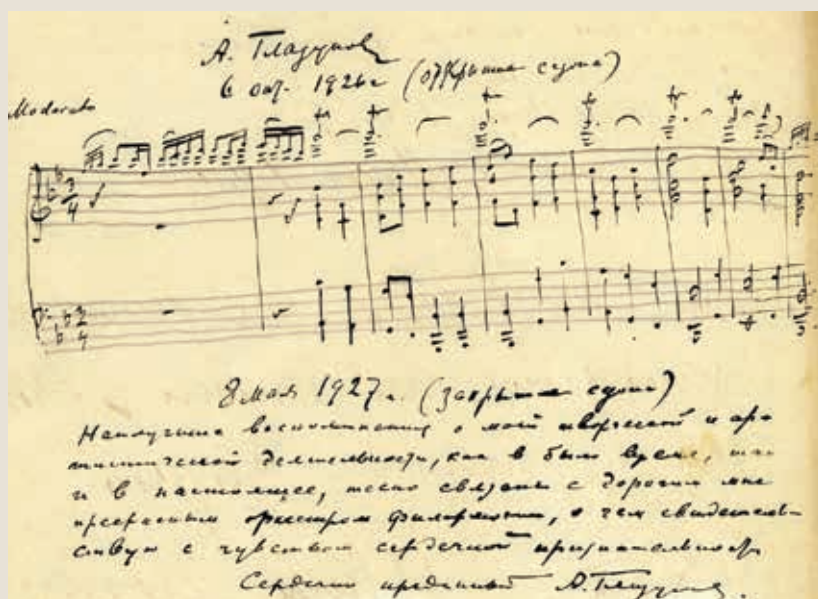 А. Глазунов
6 окт. 1926 г (открытие сезона)
Moderato
8 мая 1927 г. (закрытие сезона)
Наилучшие воспоминания о моей творческой и ар-
тистической деятельности, как в былое время, так
и в настоящее, тесно связаны с дорогим мне
прекрасным оркестром Филармонии, о чем свидетель-
ствую с чувством сердечной признательности
Сердечно преданный А. Глазунов.